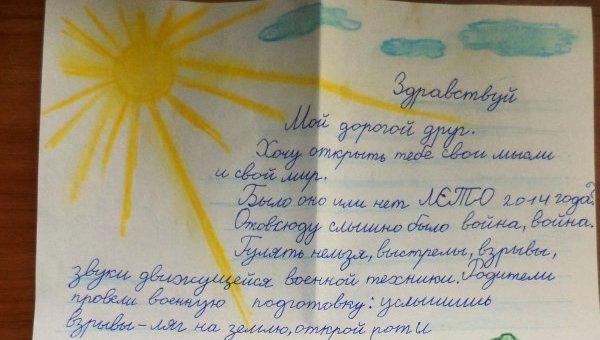 Здравствуй
Мой дорогой друг.
Хочу открыть тебе свои мысли
и свой мир.
Было оно или нет ЛЕТО 2014 года?
Отовсюду слышно было война, война.
Гулять нельзя, выстрелы, взрывы,
звуки движущейся военной техники. Родители
провели военную подготовку: услышишь
взрывы-ляг на землю, открой рот и